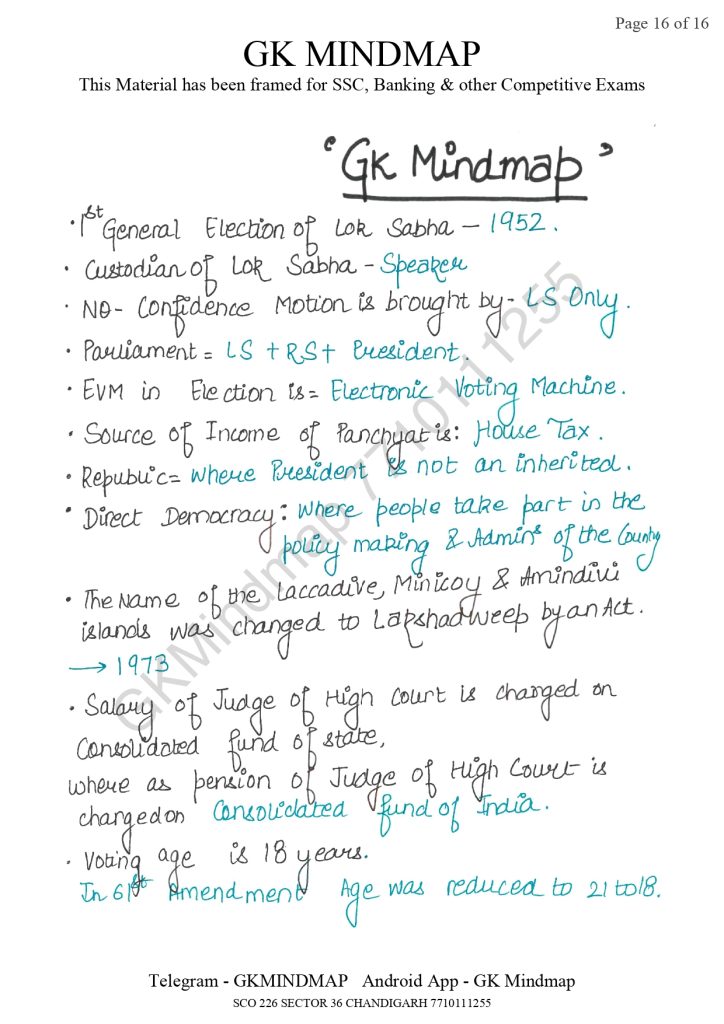 Page 16 of 16
GK MINDMAP
This Material has been framed for SSC, Banking & other Competitive Exams
‘GK Mindmap’
• 1st General Election of Lok Sabha – 1952.
• Custodian of Lok Sabha – Speaker
• NO- Confidence Motion is brought by- LS Only.
• Parliament = LS + RS + President.
• EVM in Election is = Electronic Voting Machine.
• Source of Income of Panchyat is: House Tax.
• Republic = where President is not an inherited.
• Direct Democracy: where people take part in the
policy making & Admins of the County
• The Name of the Laccadive, Minicoy & Amindivi
islands was changed to Lakshadweep by an Act.
→ 1973
• Salary of Judge of High Court is charged on
Consolidated fund of state,
where as pension of Judge of High Court is
charged on Consolidated fund of India.
• Voting age is 18 years.
In 61st Amendment Age was reduced to 21 to 18.
GKMindmap 7710111255
Telegram - GKMINDMAP Android App - GK Mindmap
SCO 226 SECTOR 36 CHANDIGARH 7710111255